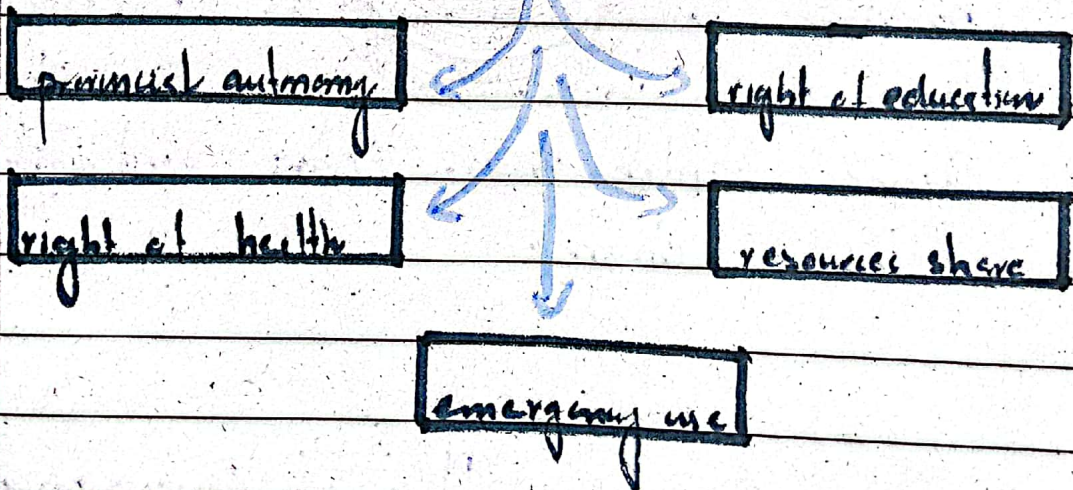 provincial autonomy
right of education
right of health
resources share
emergency use